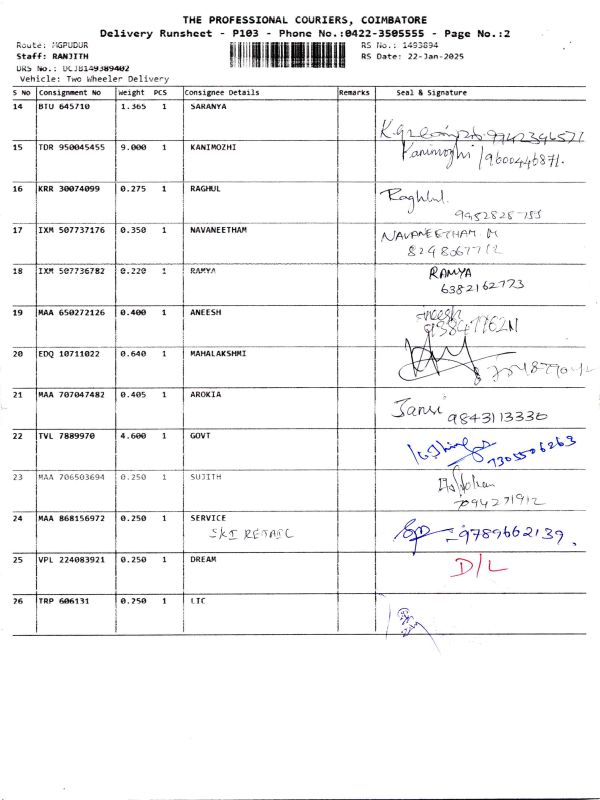 THE PROFESSIONAL COURIERS, COIMBATORE
Delivery Runsheet - P103 - Phone No.:0422-3505555 - Page No.:2
Route: MGPUDUR RS No.: 1493894
Staff: RANJITH RS Date: 22-Jan-2025
DRS No.: DCJB149389402
Vehicle: Two Wheeler Delivery
S No Consignment No Weight PCS Consignee Details Remarks Seal & Signature
14 BTU 645710 1.365 1 SARANYA
9942346571
15 TDR 950045455 9.000 1 KANIMOZHI Kanimozhi / 9600446871.
16 KRR 30074099 0.275 1 RAGHUL Raghul.
17 IXM 507737176 0.350 1 NAVANEETHAM NAVANEETHAM. M
8248067712
18 IXM 507736782 0.220 1 RAMYA RAMYA
6382162723
19 MAA 650272126 0.400 1 ANEESH
20 EDQ 10711022 0.640 1 MAHALAKSHMI
21 MAA 707047482 0.405 1 AROKIA Jansi 9843113330
22 TVL 7889970 4.600 1 GOVT
7305506263
23 MAA 706503694 0.250 1 SUJITH
7094271912
24 MAA 868156972 0.250 1 SERVICE
SKI RETAIL 9789662139.
25 VPL 224083921 0.250 1 DREAM D/L
26 TRP 606131 0.250 1 LIC